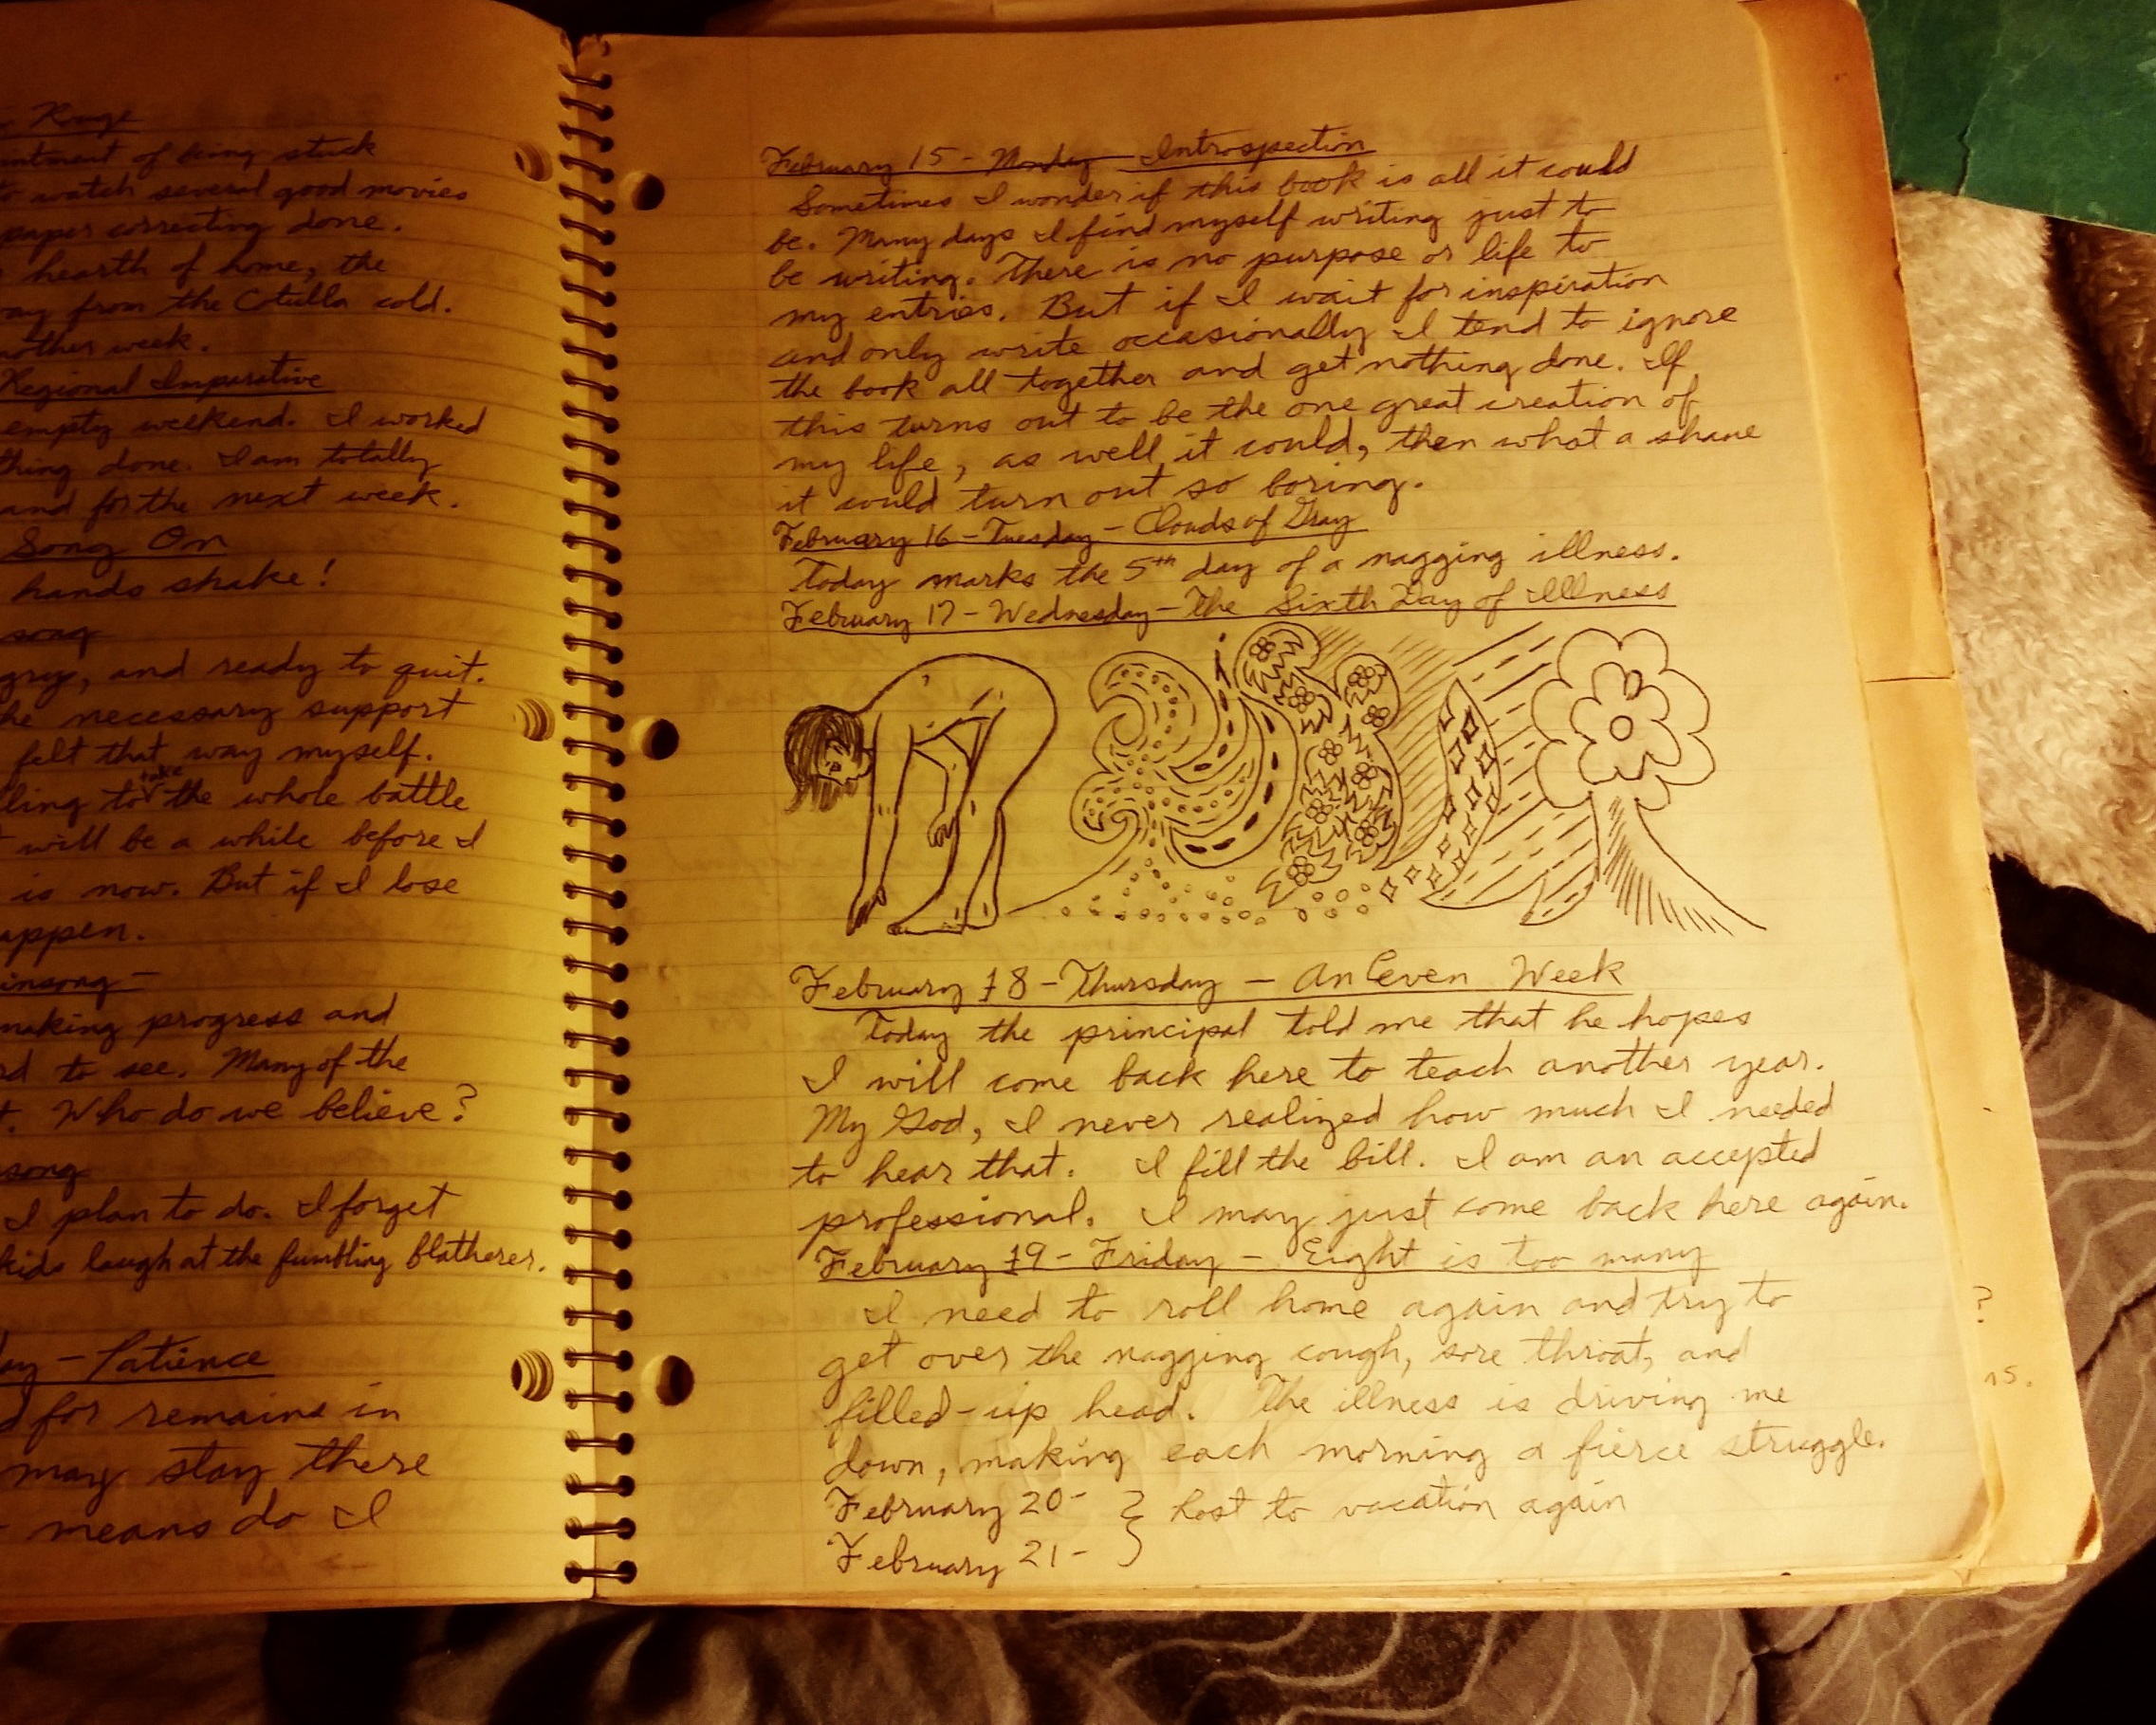 Rouge
intment of being stuck
to watch several good movies
paper correcting done.
hearth of home, the
ay from the Cotulla cold.
nother week.
Regional Imperative
empty weekend. I worked
thing done. I am totally
and for the next week.
Song On
hands shake!
song
gry, and ready to quit.
he necessary support
felt that way myself.
ling to take the whole battle
will be a while before I
is now. But if I lose
appen.
insong -
making progress and
d to see. Many of the
t. Who do we believe?
song
I plan to do. I forget
kids laugh at the fumbling blatherer.
ay - Patience
d for remains in
may stay there
means do I
February 15 - Monday - Introspection
Sometimes I wonder if this book is all it could
be. Many days I find myself writing just to
be writing. There is no purpose or life to
my entries. But if I wait for inspiration
and only write occasionally I tend to ignore
the book all together and get nothing done. If
this turns out to be the one great creation of
my life, as well it could, then what a shame
it could turn out so boring.
February 16 - Tuesday - Clouds of Gray
Today marks the 5th day of a nagging illness.
February 17 - Wednesday - The Sixth Day of Illness
February 18 - Thursday - An Even Week
Today the principal told me that he hopes
I will come back here to teach another year.
My God, I never realized how much I needed
to hear that. I fill the bill. I am an accepted
professional. I may just come back here again.
February 19 - Friday - Eight is too many
I need to roll home again and try to
get over the nagging cough, sore throat, and
filled-up head. The illness is driving me
down, making each morning a fierce struggle.
February 20 - } Lost to vacation again
February 21 -
?
15.